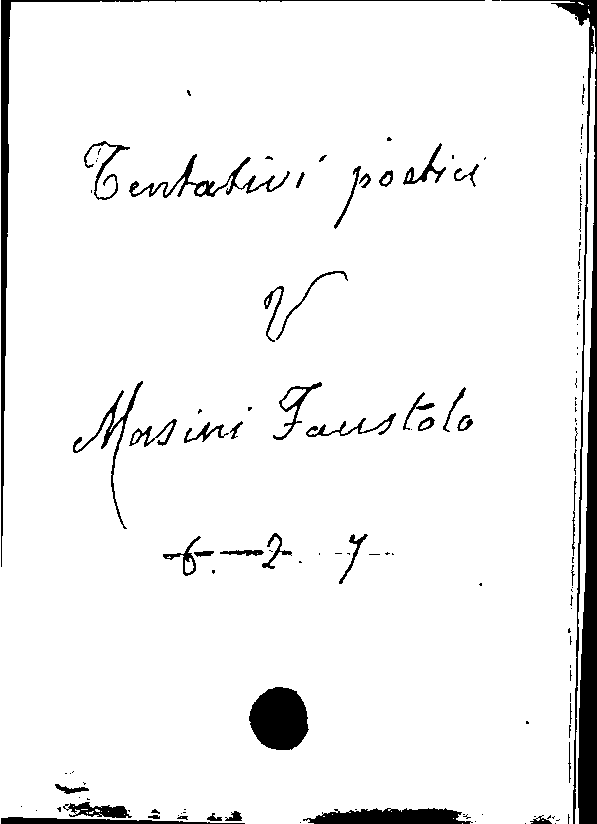 Tentativi poetici
V
Masini Faustolo
6. 2. 7